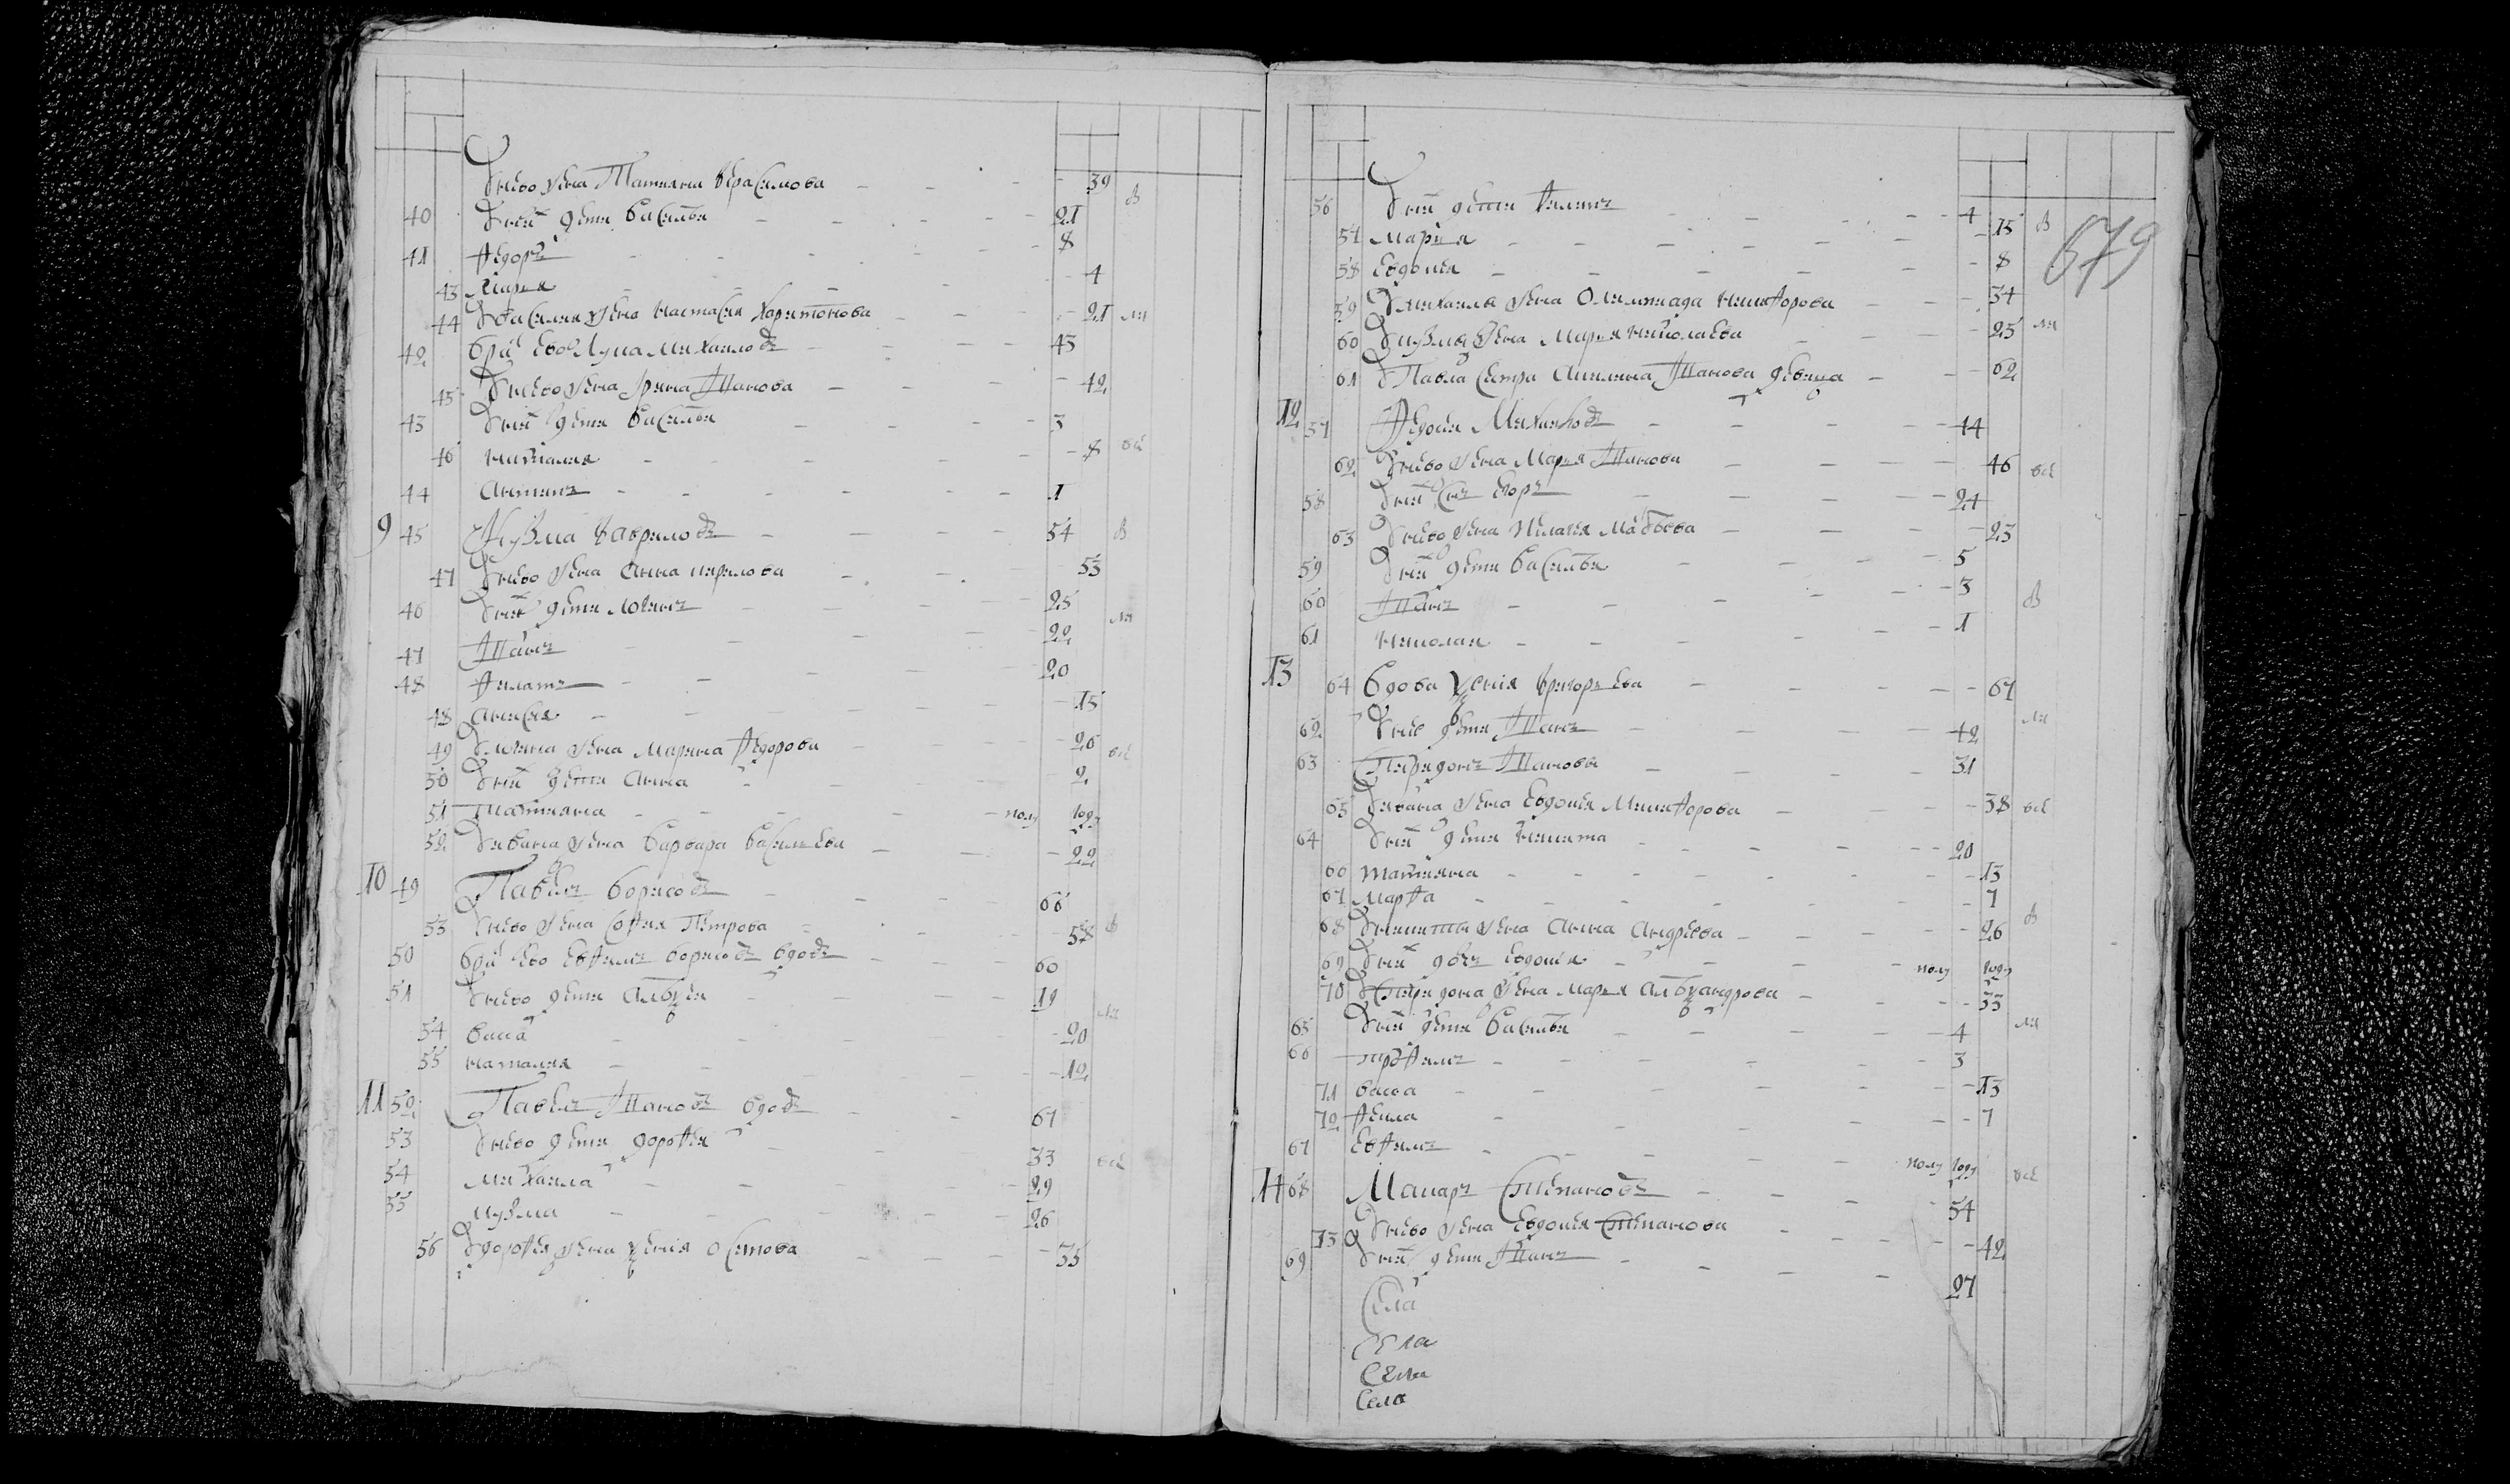 жена Татияна Герасимова 39 в
40 дети Василей 21
41 Федоръ 8
43 Марья 4
44 Василья жена Настасия Харитонова 21 ли
42 Лука Михаиловъ 43
45 жена Ирина Иванова 42
43 дети Василей 3
46 Наталия 8 всё
44 Антипъ 1
9 45 Кузма Гавриловъ 54 в
47 жена Анна Кирилова 53
46 дети Логинъ 25 ли
47 Иванъ 22
48 Филатъ 20
48 Анисия 15
49 Логина жена Марина Федорова 26 всё
50 дети Анна 2
51 Татияна полу году
52 Ивана жена Варвара Василиева 22
10 49 Павелъ Борисовъ 66
53 жена София Петрова 58 в
50 братъ ево Борисовъ вдовъ 60
51 дети Алексей 19 ли
54 Васа 20
55 Наталия 12
11 52 Павелъ Ивановъ вдовъ 67
53 дети Дорофей 33 всё
54 Михаила 29
55 Кузма 26
56 Дорофея жена Ксения Осипова 35
679
56 дети Филипъ 4
57 Мария 15 в
58 Евдокия 8
59 Михаилы жена Олимпиада Никифорова 34
60 Кузмы жена Марья Николаева 25 ли
61 Павла сестра Акилина Иванова девица 62
12 57 Федосей Михаиловъ 44
62 жена Марья Иванова 46 всё
58 сынъ Егоръ 24
63 жена Пелагея Матвеева 23
59 дети Василей 5
60 Иванъ 3 в
61 Николай 1
13 64 Вдова Ксения Григорьева 67
62 дети Иванъ 42 ли
63 Спиридонъ Ивановы 31
65 Ивана жена Евдокия Никифорова 38 всё
64 дети Никита 20
66 Татияна 13
67 Марфа 7
68 Никиты жена Анна Андреева 26 в
69 дочь Евдокия полу году
70 Спиридона жена Марья Александрова 33
65 дети Василей 4 ли
66 Трофимъ 3
71 Васса 13
72 Фекла 7
67 Евфимъ полу году
14 68 Макаръ Степановъ 54 всё
73 жена Евдокия Степанова 42
69 дети Иванъ 27
Села
Села
Села
Села